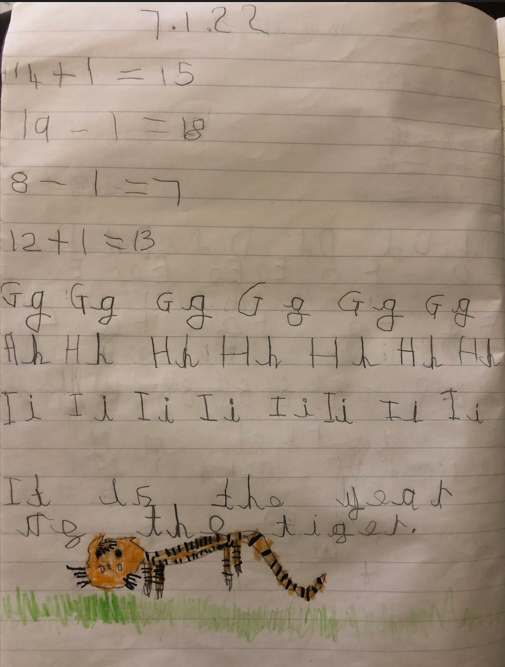 7.1.22
14 + 1 = 15
19 - 1 = 18
8 - 1 = 7
12 + 1 = 13
Gg Gg Gg Gg Gg Gg
Hh Hh Hh Hh Hh Hh Hh
Ii Ii Ii Ii Ii Ii Ii Ii
It is the year
the tiger.